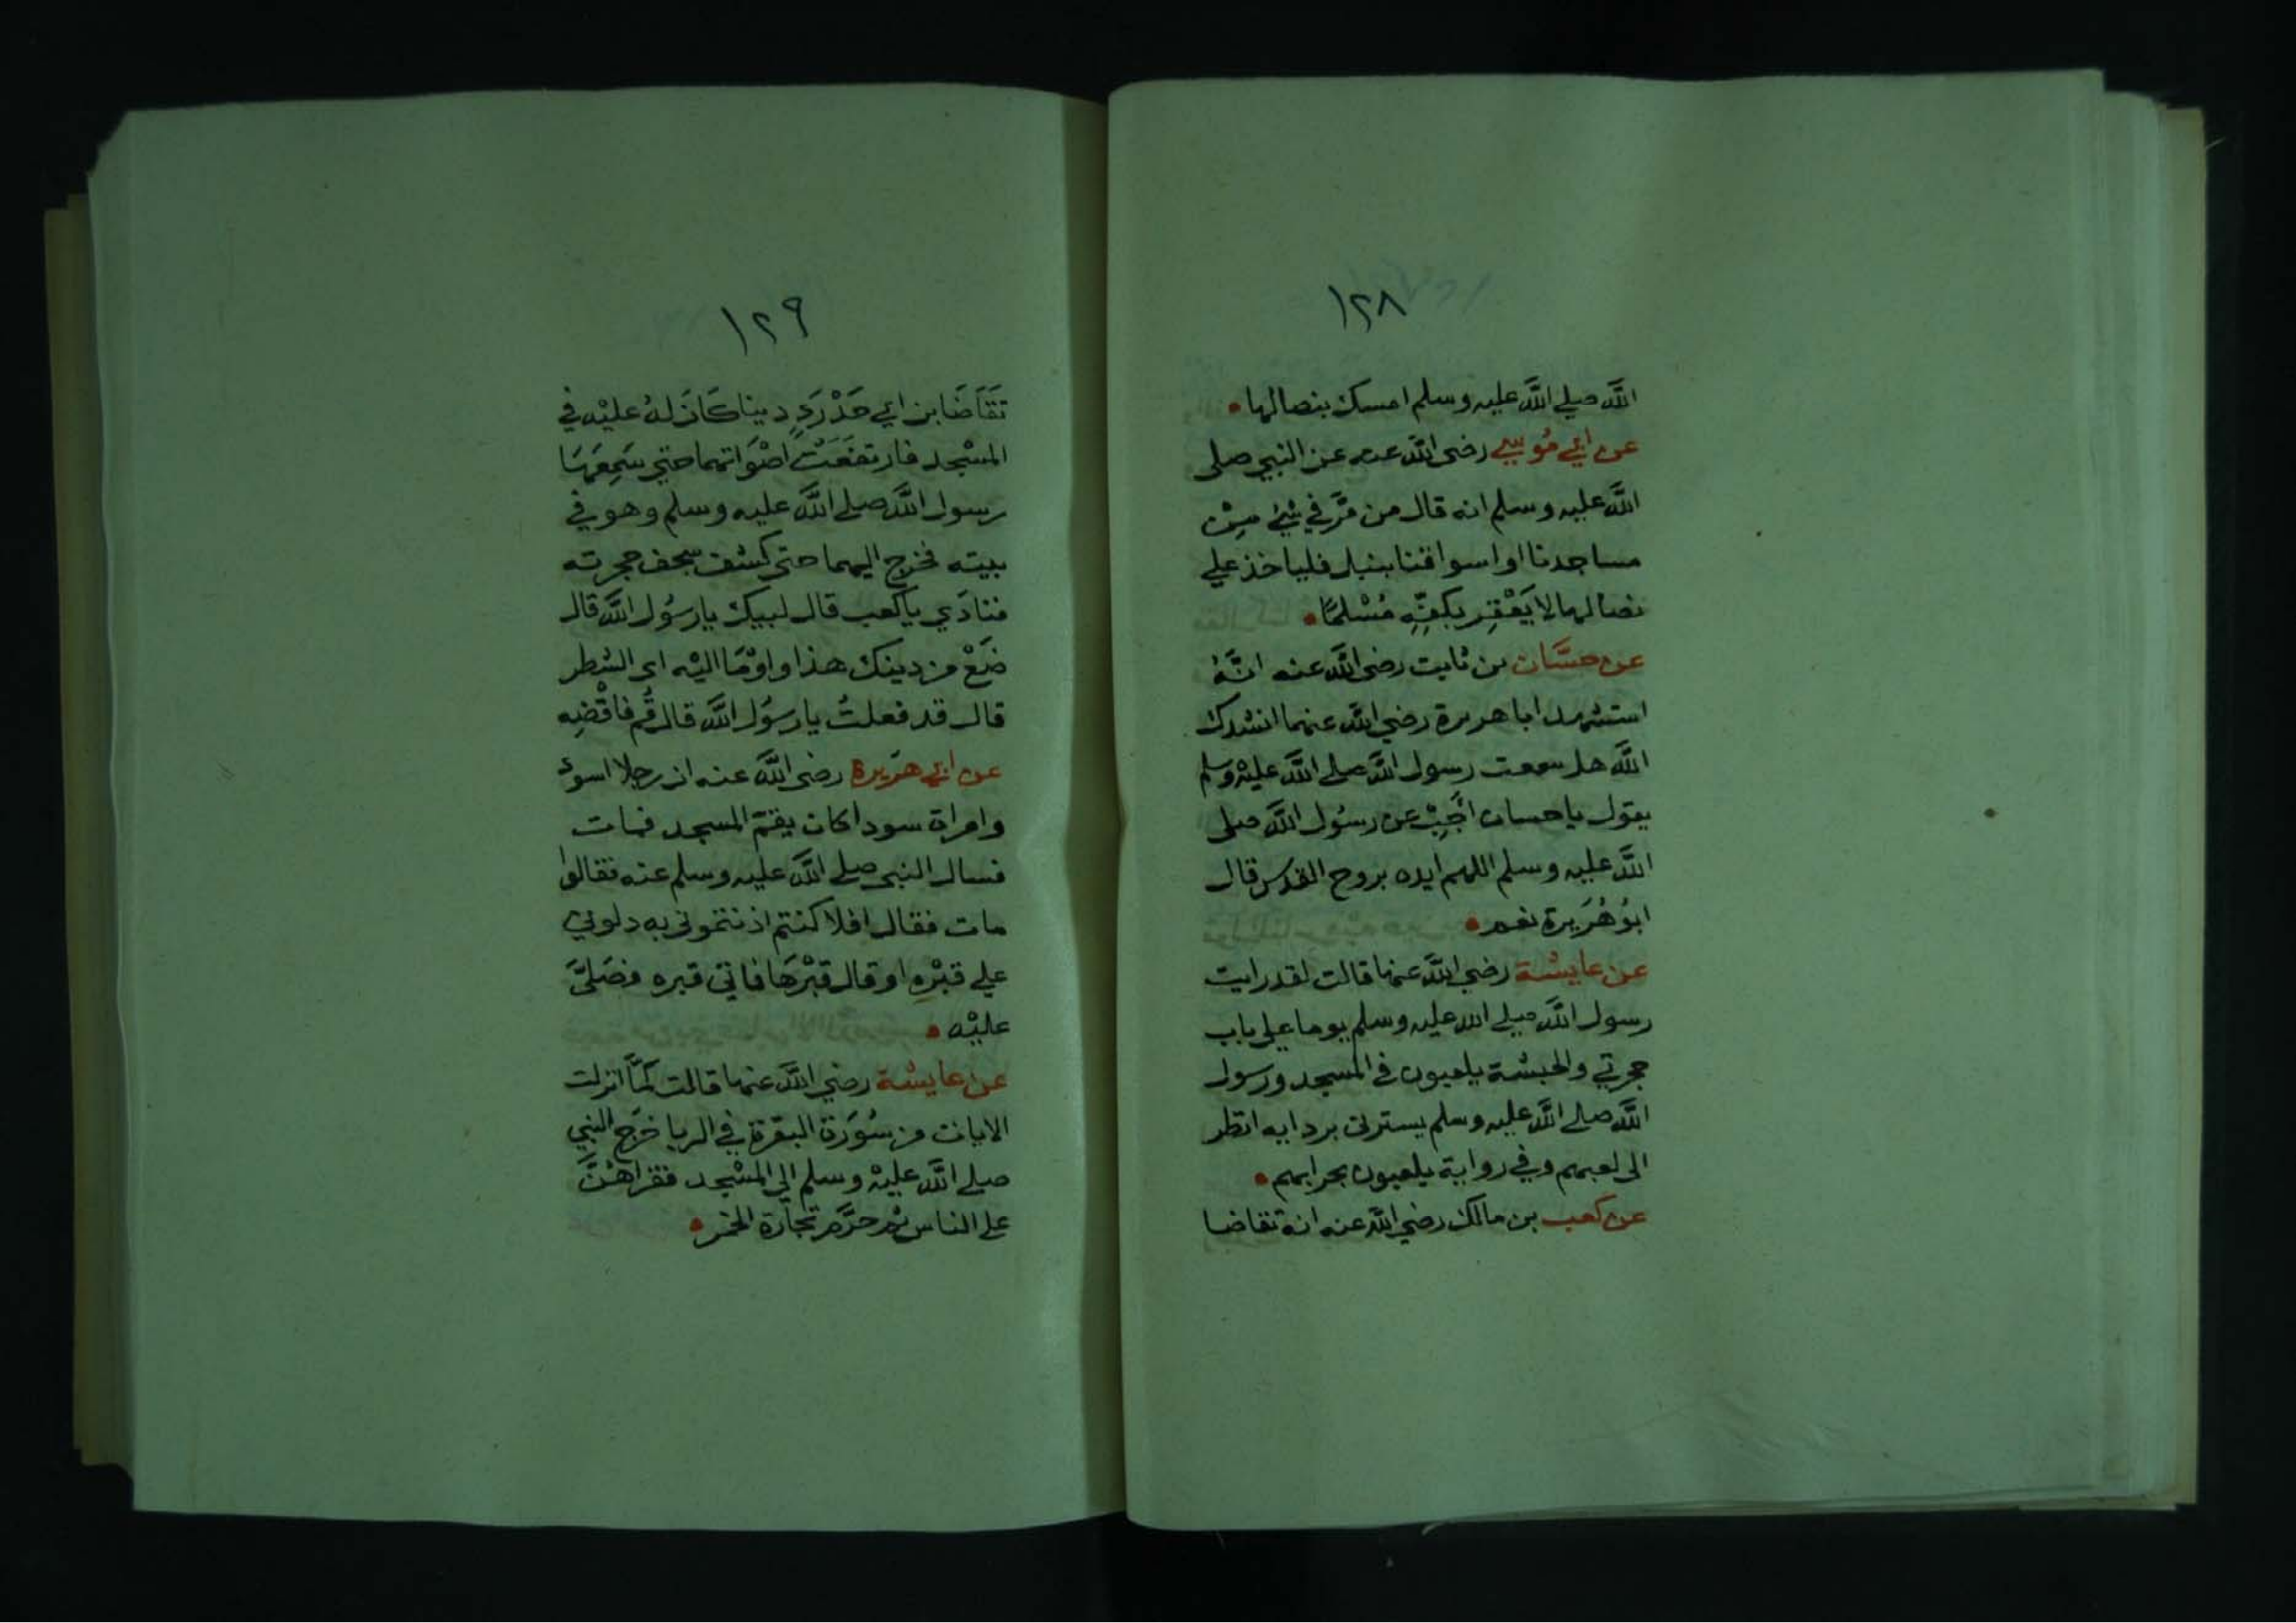 ١٢٨
الله صلے الله عليه وسلم امسك بنصالها
عن ابي موسي رضى الله عنه عن النبي صلى
الله عليه وسلم انه قال من مَّر في شئ مِن
مساجدنا او اسواقنا بنبل فلياخذ علي
نصالها لا يَعْقِر بكفِّهِ مُسْلمًا
عن حسَّان بن ثابت رضى الله عنه انَّهُ
استشهد ابا هريرة رضي الله عنهما انشدك
الله هل سمعت رسول الله صلے الله عليْه وسلم
يقول ياحسان اَجِبْ عن رسُول الله صلى
الله عليه وسلم اللهم ايده بروح القدس قال
ابوُ هُرَيرة نعم
عن عايشة رضي الله عنها قالت لقد رايت
رسول الله صلے الله عليه وسلم يوما على باب
حجرتي والحبشة يلعبون في المسجد ورسول
الله صلے الله عليه وسلم يسترنى بردايه انظر
الى لعبهم وفي رواية يلعبون بحرابهم
عن كعب بن مالك رضي الله عنه انه تقاضا
١٢٩
تَقَاضَا ابن ابي حَدْرَدٍ دينا كَانَ لهُ عليْه في
المسْجد فارتفعَتْ اصْوَاتهما حتي سَمِعَهَا
رسول الله صلے الله عليه وسلم وهو في
بيته فخرج اليهما حتى كشف سجف حجرته
فنادَي ياكعب قال لبيك يارسُول الله قال
ضَعْ من دينك هذا واوْمَا اليْه اى الشطر
قال قد فعلتُ يارسُول الله قال قُم فاقْضِه
عن ابي هرَيرة رضى الله عنه ان رجلا اسود
وامراة سودا كان يقمّ المسجد فمات
فسال النبى صلے الله عليه وسلم عنه فقالوا
مات فقال افلا كنتم اذنتمونى به دلوني
علي قبْرِه او قال قبْرهَا فاتي قبره فصَليَّ
عليْه
عن عايشة رضي الله عنها قالت لمَّا انزلت
الايات من سُورَة البقرة في الربا خرَج النبي
صلے الله عليْه وسلم الي المسْجد فقراهُنَّ
على الناس ثم حرَّم تجارة الخمر